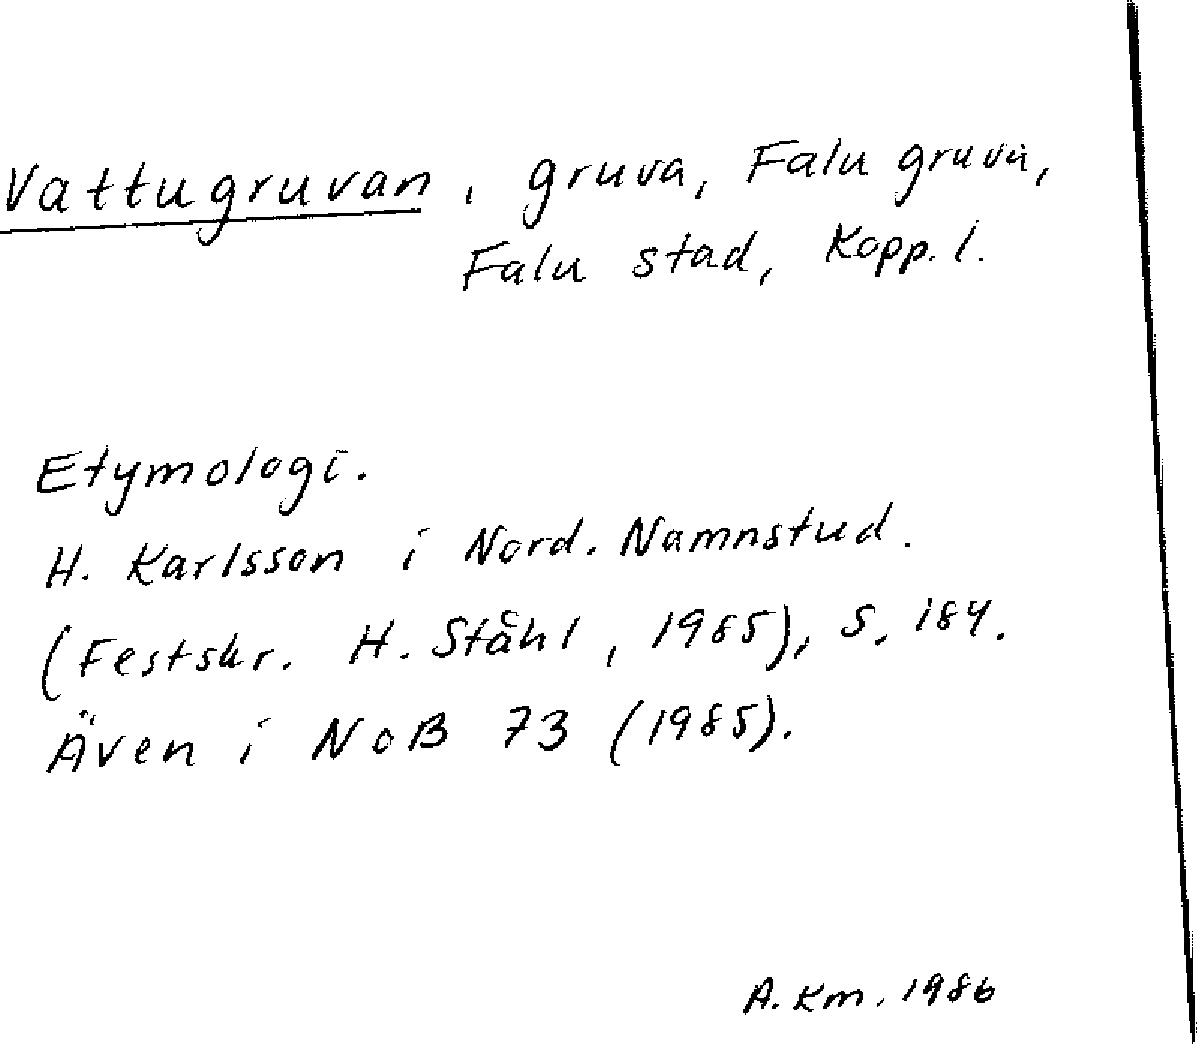 Vattugruvan, gruva, Falu gruva,
Falu stad, Kopp. l.
Etymologi.
H. Karlsson i Nord. Namnstud.
(Festskr. H. Ståhl, 1985), s. 184.
Även i NoB 73 (1985).
A. Km. 1986